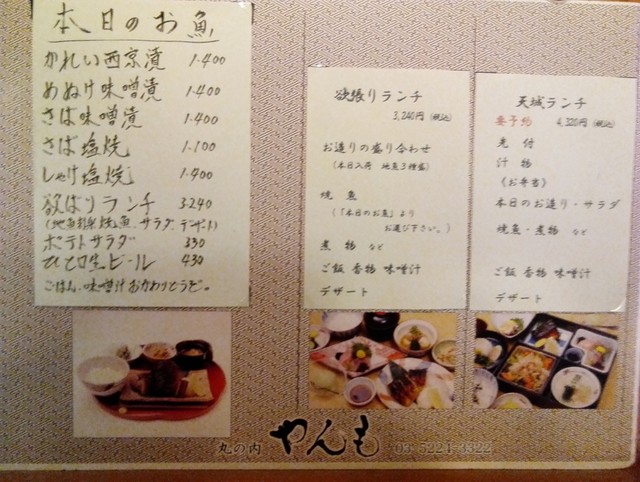 本日のお魚
かれい西京漬 1.400
めぬけ味噌漬 1.400
さば味噌漬 1.400
さば塩焼 1.100
しゃけ塩焼 1.400
欲ばりランチ 3.240
焼魚 サラダ デザート)
ポテトサラダ 330
ひと口生ビール 430
ごはん、味噌汁おかわりどうぞ。
欲張りランチ
3,240円 (税込)
お造りの盛り合わせ
(本日入荷 地魚3種盛)
焼魚
(「本日のお魚」より
お選び下さい。)
煮物 など
ご飯 香物 味噌汁
デザート
天城ランチ
要予約 4,320円 (税込)
先付
汁物
《お弁当》
本日のお造り・サラダ
焼魚・煮物 など
ご飯 香物 味噌汁
デザート
丸の内 やんも 03 5224-3322